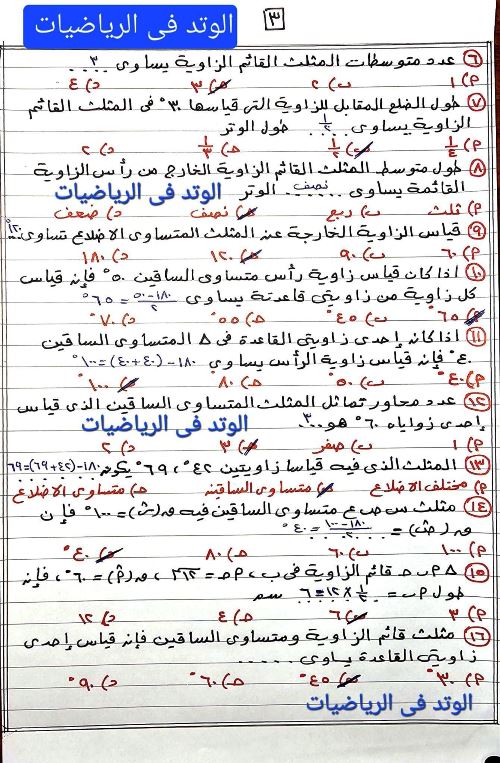 الوتد فى الرياضيات
٣
٦ عدد متوسطات المثلث القائم الزاوية يساوى ٣
P) ١ ب) ٢ حـ) ٣ د) ٤
٧ طول الضلع المقابل للزاوية التى قياسها ٣٠° فى المثلث القائم
الزاوية يساوى ١/٢ طول الوتر
P) ١/٤ ب) ١/٢ حـ) ١/٣ د) ٢
٨ طول متوسط المثلث القائم الزاوية الخارج من رأس الزاوية
القائمة يساوى نصف الوتر الوتد فى الرياضيات
P) ثلث ب) ربع حـ) نصف د) ضعف
٩ قياس الزاوية الخارجة عند المثلث المتساوى الاضلاع تساوى ١٢٠°
P) ٦٠ ب) ٩٠ حـ) ١٢٠ د) ١٨٠
١٠ اذا كان قياس زاوية رأس متساوى الساقين ٥٠° فإن قياس
كل زاوية من زاويتى قاعدته يساوى ١٨٠-٥٠/٢ = ٦٥°
P) ٦٥° ب) ٤٥° حـ) ٥٥° د) ٧٠°
١١ اذا كانه إحدى زاويتى القاعدة فى Δ المتساوى الساقين
٤٠° فإن قياس زاوية الرأس يساوي ١٨٠-(٤٠+٤٠)=١٠٠°
P) ٤٠° ب) ٥٠ حـ) ٨٠ د) ١٠٠°
١٢ عدد محاور تماثل المثلث المتساوى الساقين الذى قياس
إحدى زواياه ٦٠° هو ٣ الوتد فى الرياضيات
P) ١ ب) صفر حـ) ٣ د) ٢
١٣ المثلث الذى فيه قياسا زاويتين ٤٢°، ٦٩° يكون ١٨٠-(٤٢+٦٩)=٦٩
P) مختلف الاضلاع ب) متساوى الساقين حـ) متساوى الاضلاع
١٤ مثلث س ص ع متساوى الساقين فيه ق(ص)=١٠٠° فإن
ق(س) = ١٨٠-١٠٠/٢ = ٤٠°
P) ١٠٠ ب) ٦٠ حـ) ٨٠ د) ٤٠°
١٥ Δ P ب حـ قائم الزاوية فى ب، P حـ = ١٢، ق(P) = ٦٠°، فإنه
طول P ب = ١/٢×١٢=٦ سم
P) ٣ ب) ٦ حـ) ٤ د) ١٢
١٦ مثلث قائم الزاوية ومتساوى الساقين فإنه قياس إحدى
زاويتى القاعدة يساوى .....
P) ٣٠° ب) ٤٥° حـ) ٦٠° د) ٩٠°
الوتد فى الرياضيات